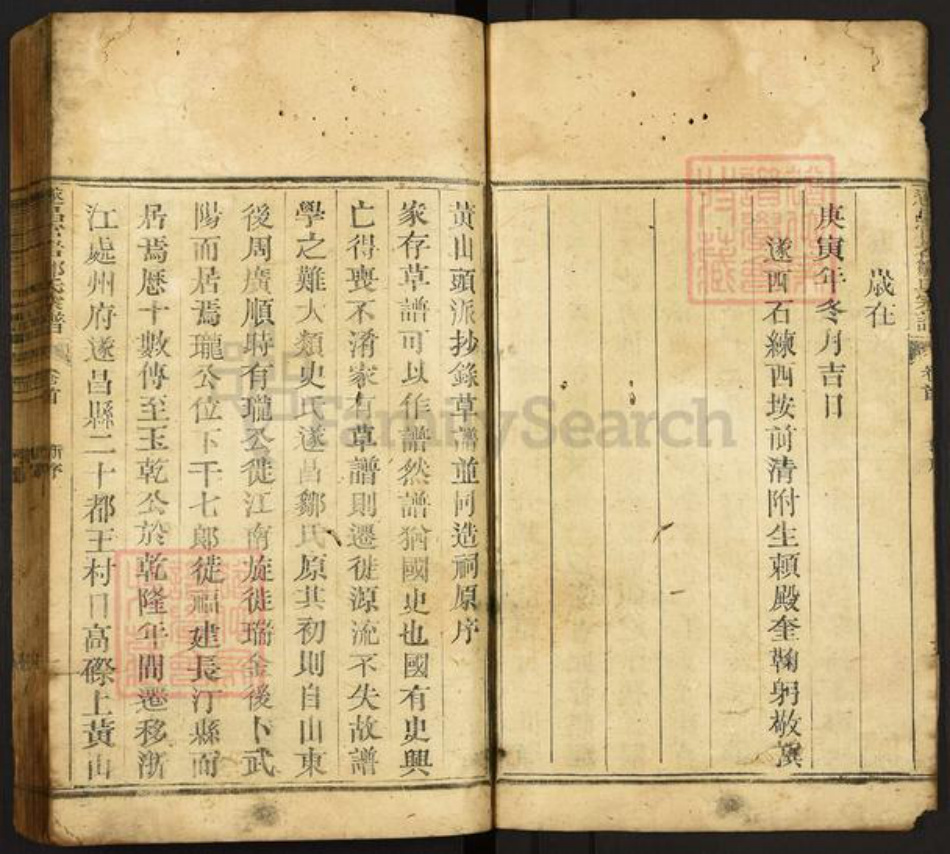 歲在
庚寅年冬月吉日
遂西石練西垵前清附生賴殿奎鞠躬敬譔
黃山頭派抄錄草譜並同造祠原序
家存草譜可以作譜然譜猶國史也國有史興
亡得喪不淆家有草譜則遷徙源流不失故譜
學之難大類史氏遂昌鄒氏原其初則自山東
後周廣順時有瓏公徙江南旋徙瑞金後卜武
陽而居焉瓏公位下干七郎徙福建長汀縣而
居焉歷十數傳至玉乾公於乾隆年間遷移浙
江處州府遂昌縣二十都王村口高磜上黃山
氏宗譜
卷首
新序
FamilySearch